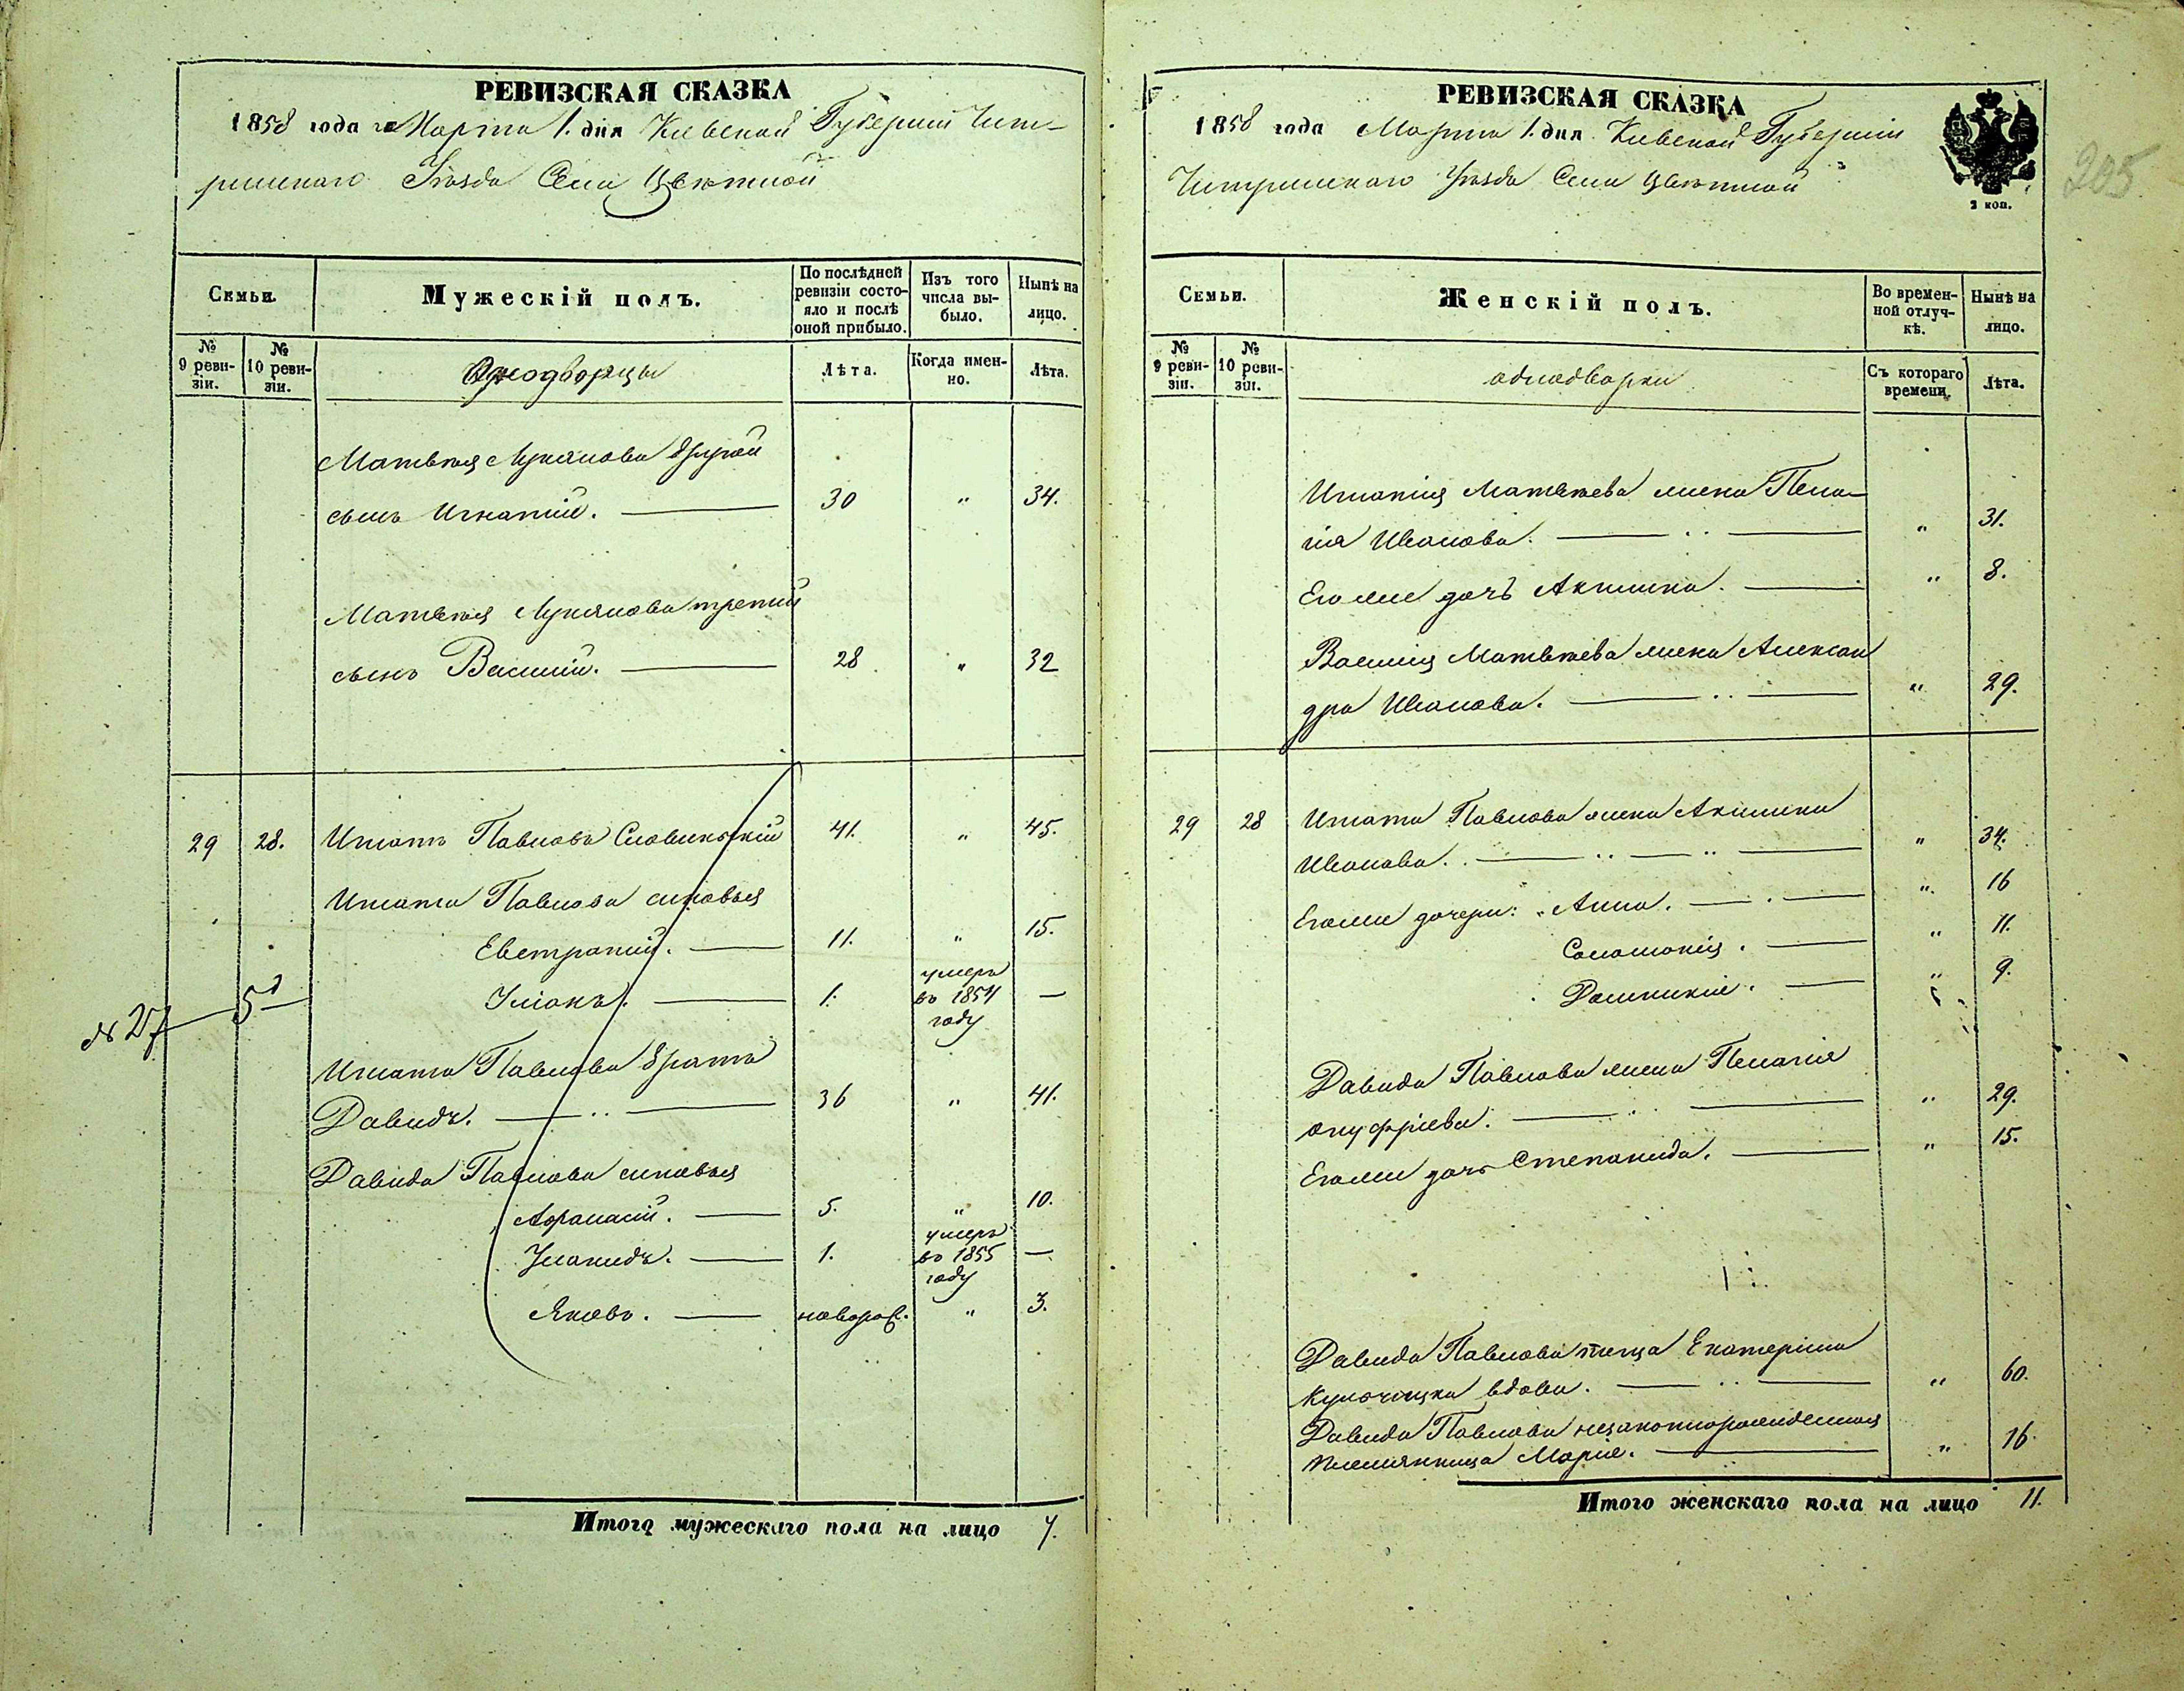 РЕВИЗСКАЯ СКАЗКА
1858 года Марта 1. дня Киевской Губерніи Чиги-
ринскаго Уѣзда Села Цвѣтной
Семьи.
Мужескій полъ.
По послѣдней ревизіи состояло и послѣ оной прибыло.
Изъ того числа выбыло.
Нынѣ на лицо.
№ 9 реви-зіи.
№ 10 реви-зіи.
Однодворцы
Лѣта.
Когда имен-но.
Лѣта.
Матвѣя Лукянова другой
сынъ Игнатій. 30 " 34.
Матвѣя Лукянова третий
сынъ Василий. 28 " 32
29 28. Игнатъ Павловъ Словинскій 41. " 45.
Игната Павлова сыновья
Евстратий. 11. " 15.
Уліанъ. 1. умеръ во 1854 году —
№ 27 5д
Игната Павлова братъ
Давидъ. 36 " 41.
Давида Павлова сыновья
Афанасій. 5. " 10.
1. умеръ во 1855 году —
Яковъ. новорож. " 3.
Итого мужескаго пола на лицо 7.
РЕВИЗСКАЯ СКАЗКА
1858 года Марта 1. дня Киевской Губерніи
Чигринскаго Уѣзда Села Цвѣтной
2 коп.
205
Семьи.
Женскій полъ.
Во времен-ной отлуч-кѣ.
Нынѣ на лицо.
№ 9 реви-зіи.
№ 10 реви-зіи.
однодворки
Съ котораго времени.
Лѣта.
Игнатія Матвѣева жена Пела-
гія Иванова. " 31.
Егоже дочъ Акилина. " 8.
Василія Матвѣева жена Алексан
дра Иванова. " 29.
29 28 Игната Павлова жена Акилина
Иванова. " 34.
Егоже дочери: Анна. " 16
Соломонія. " 11.
Домникія. " 9.
Давида Павлова жена Пелагія
Онуфріева. " 29.
Егоже дочъ Степанида. " 15.
Давида Павлова теща Екатерина
вдова. " 60.
Давида Павлова незаконнорожденная
племянница Марія. " 16.
Итого женскаго пола на лицо 11.